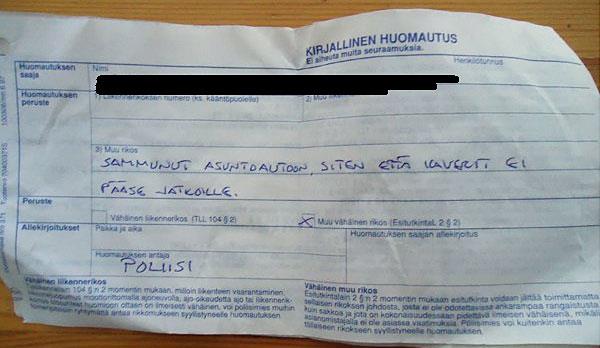 KIRJALLINEN HUOMAUTUS
Ei aiheuta muita seuraamuksia.
Huomautuksen saaja
Nimi
Henkilötunnus
Huomautuksen peruste
1) Liikennerikoksen numero (ks. kääntöpuolelle)
2) Muu
3) Muu rikos
SAMMUNUT ASUNTOAUTOON, SITEN ETTÄ KAVERIT EI
PÄÄSE JATKOILLE.
Peruste
Vähäinen liikennerikos (TLL 104 § 2)
X Muu vähäinen rikos (EsitutkintaL 2 § 2)
Allekirjoitukset
Paikka ja aika
Huomautuksen saajan allekirjoitus
Huomautuksen antaja
POLIISI
Vähäinen liikennerikos
Tieliikennelain 104 §:n 2 momentin mukaan, milloin liikenteen vaarantaminen,
liikennejuopumus moottorittomalla ajoneuvolla, ajo-oikeudetta ajo tai liikennerik-
komus olosuhteet huomioon ottaen on ilmeisesti vähäinen, voi poliisimies muihin
toimenpiteisiin ryhtymättä antaa rikkomukseen syyllistyneelle huomautuksen.
Vähäinen muu rikos
Esitutkintalain 2 §:n 2 momentin mukaan esitutkinta voidaan jättää toimittamatta
sellaisen rikoksen johdosta, josta ei ole odotettavissa ankarampaa rangaistusta
kuin sakkoa ja jota on kokonaisuudessaan pidettävä ilmeisen vähäisenä, mikäli
asianomistajalla ei ole asiassa vaatimuksia. Poliisimies voi kuitenkin antaa
tällaiseen rikokseen syyllistyneelle huomautuksen.